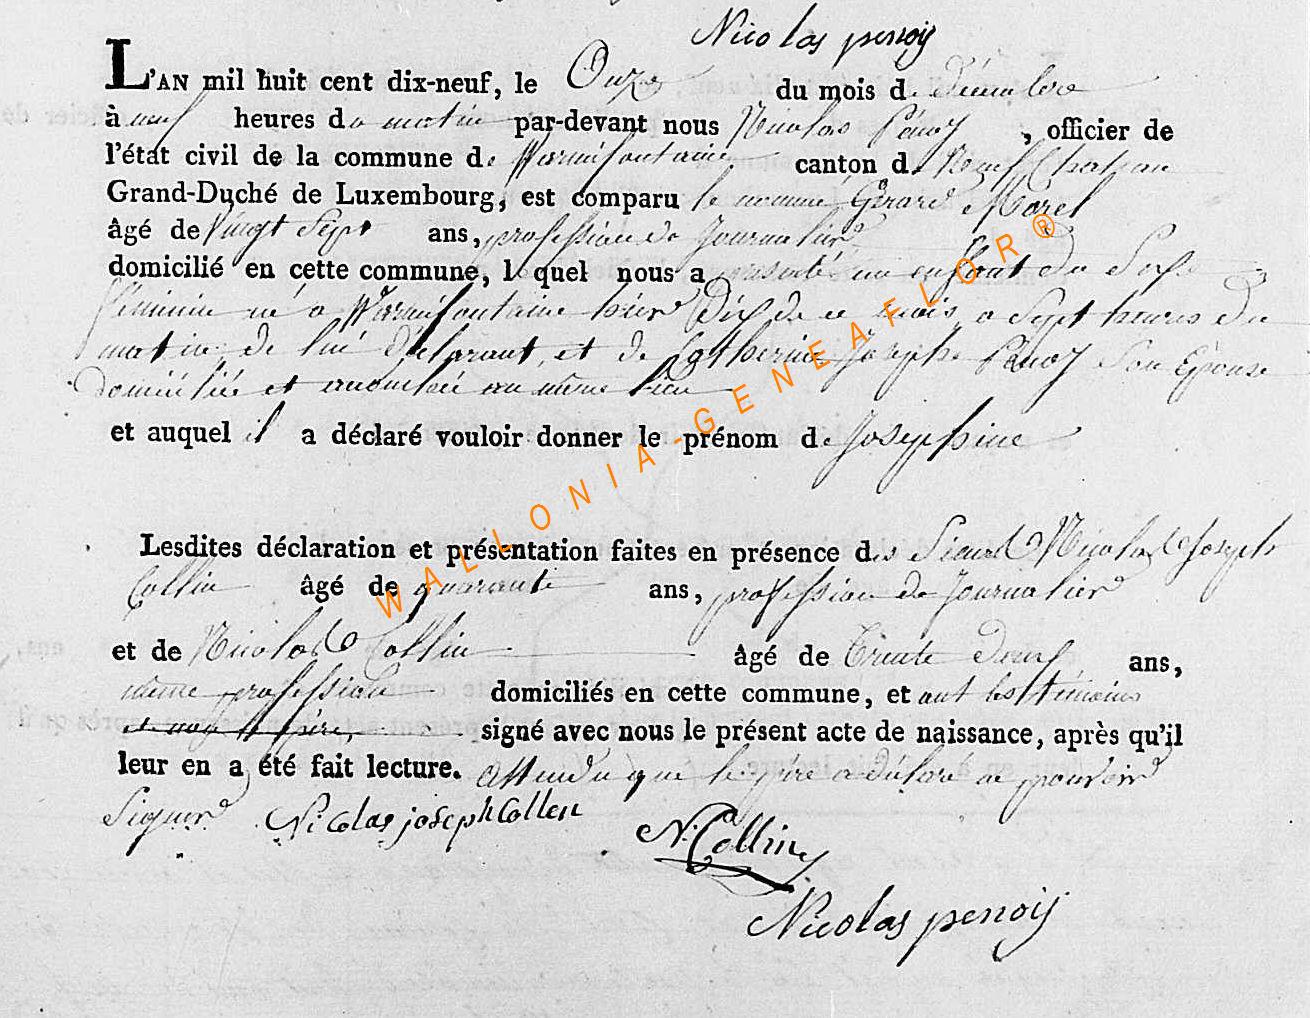 Nicolas penois
L'AN mil huit cent dix-neuf, le Onze du mois de décembre
à neuf heures du matin par-devant nous Nicolas Penoy, officier de
l'état civil de la commune de Warmifontaine canton de Neufchateau
Grand-Duché de Luxembourg, est comparu le nommé Gérard Morel
âgé de vingt Sept ans, profession de Journalier
domicilié en cette commune, lequel nous a présenté un enfant du Sexe
féminin né a Warmifontaine hier Dix de ce mois a Sept heures du
matin de lui déclarant, et de Catherine Joseph Penoy Son Epouse
domiciliée et au même lieu
et auquel il a déclaré vouloir donner le prénom de Josephine
Lesdites déclaration et présentation faites en présence des Sieurs Nicolas Joseph
Collin âgé de quarante ans, profession de Journalier
et de Nicolas Collin âgé de Trente deux ans,
même profession domiciliés en cette commune, et ont les témoins
signé avec nous le présent acte de naissance, après qu'il
leur en a été fait lecture. Attendu que le père a déclaré ne pouvoir
Signer Nicolas joseph Collen
N. Collin
Nicolas penois
WALLONIA-GENEAFLOR®